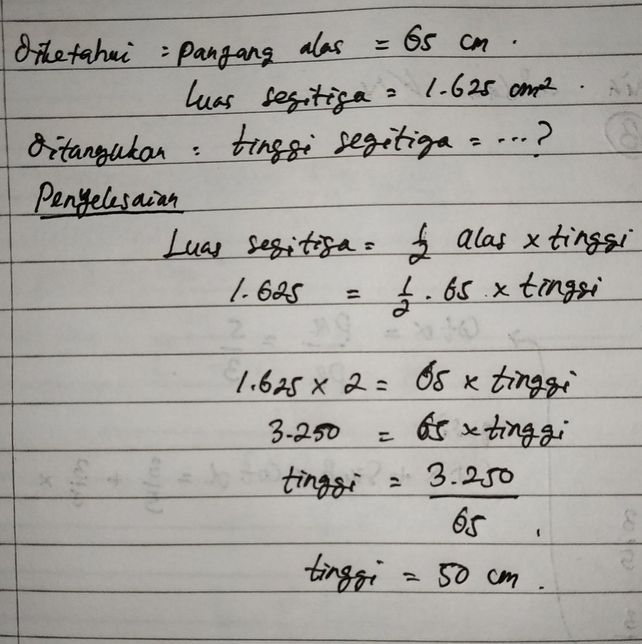 Diketahui : panjang alas = 65 cm.
Luas segitiga = 1.625 cm².
Ditanyakan : tinggi segitiga = ...?
Penyelesaian
Luas segitiga = 1/2 alas x tinggi
1.625 = 1/2 . 65 x tinggi
1.625 x 2 = 65 x tinggi
3.250 = 65 x tinggi
tinggi = 3.250/65
tinggi = 50 cm.